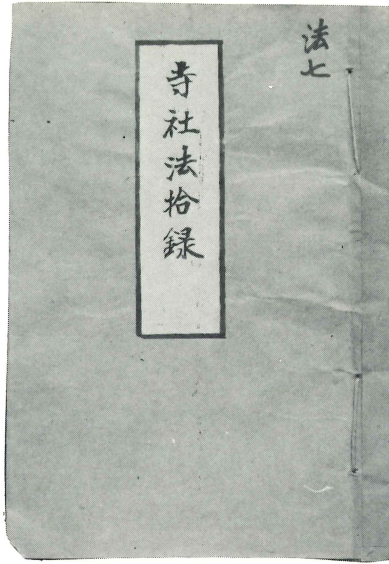 法七
寺社法拾録